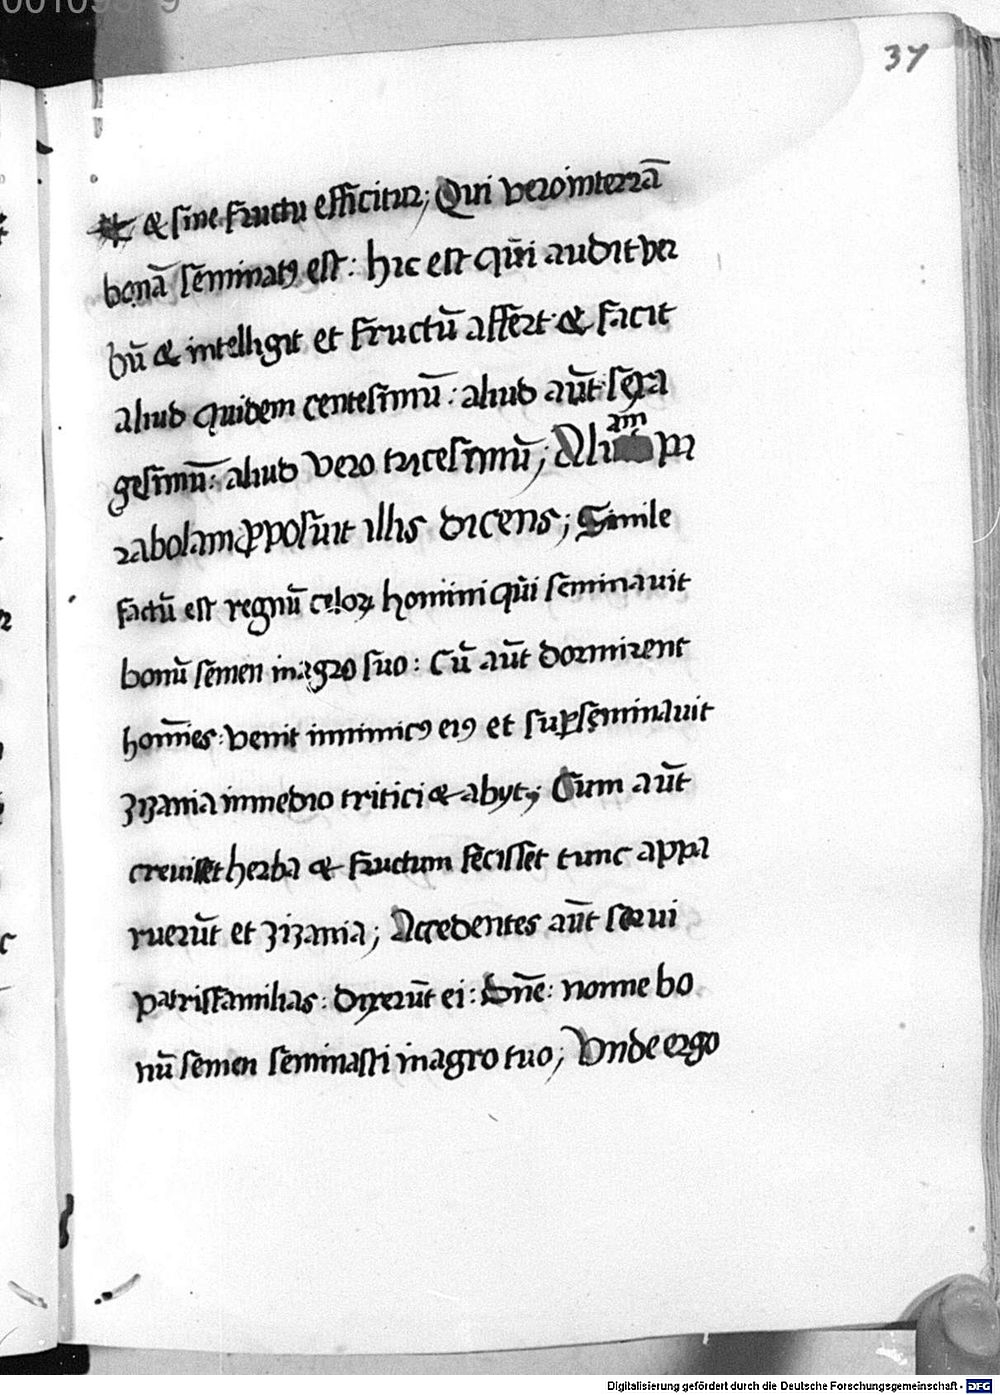 00109
37
& sine fructu efficitur; Qui vero in terrā
bonā sēminatꝰ est: hic est qūi audit ver
bū & intelligit et fructū affert & facit
aliud quidem centesimū: aliud aūt sexa
gesimū: aliud vero tricesimū; Aliam pa
rabolam ꝓposuit illis dicens; Simile
factū est regnū celoꝝ homini qūi seminauit
bonū semen in agro suo: Cū aūt dormirent
hoīnes: venit inimicꝰ eiꝰ et suꝑseminauit
zizania in medio tritici & abyt; Cum aūt
creuisset herba & fructum fecisset tunc appa
ruerūt et zizania; Accedentes aūt serui
patrisfamilias: dixerūt ei: dn̄e: nonne bo
nū semen seminasti in agro tuo; Vnde ergo
Digitalisierung gefördert durch die Deutsche Forschungsgemeinschaft - DFG